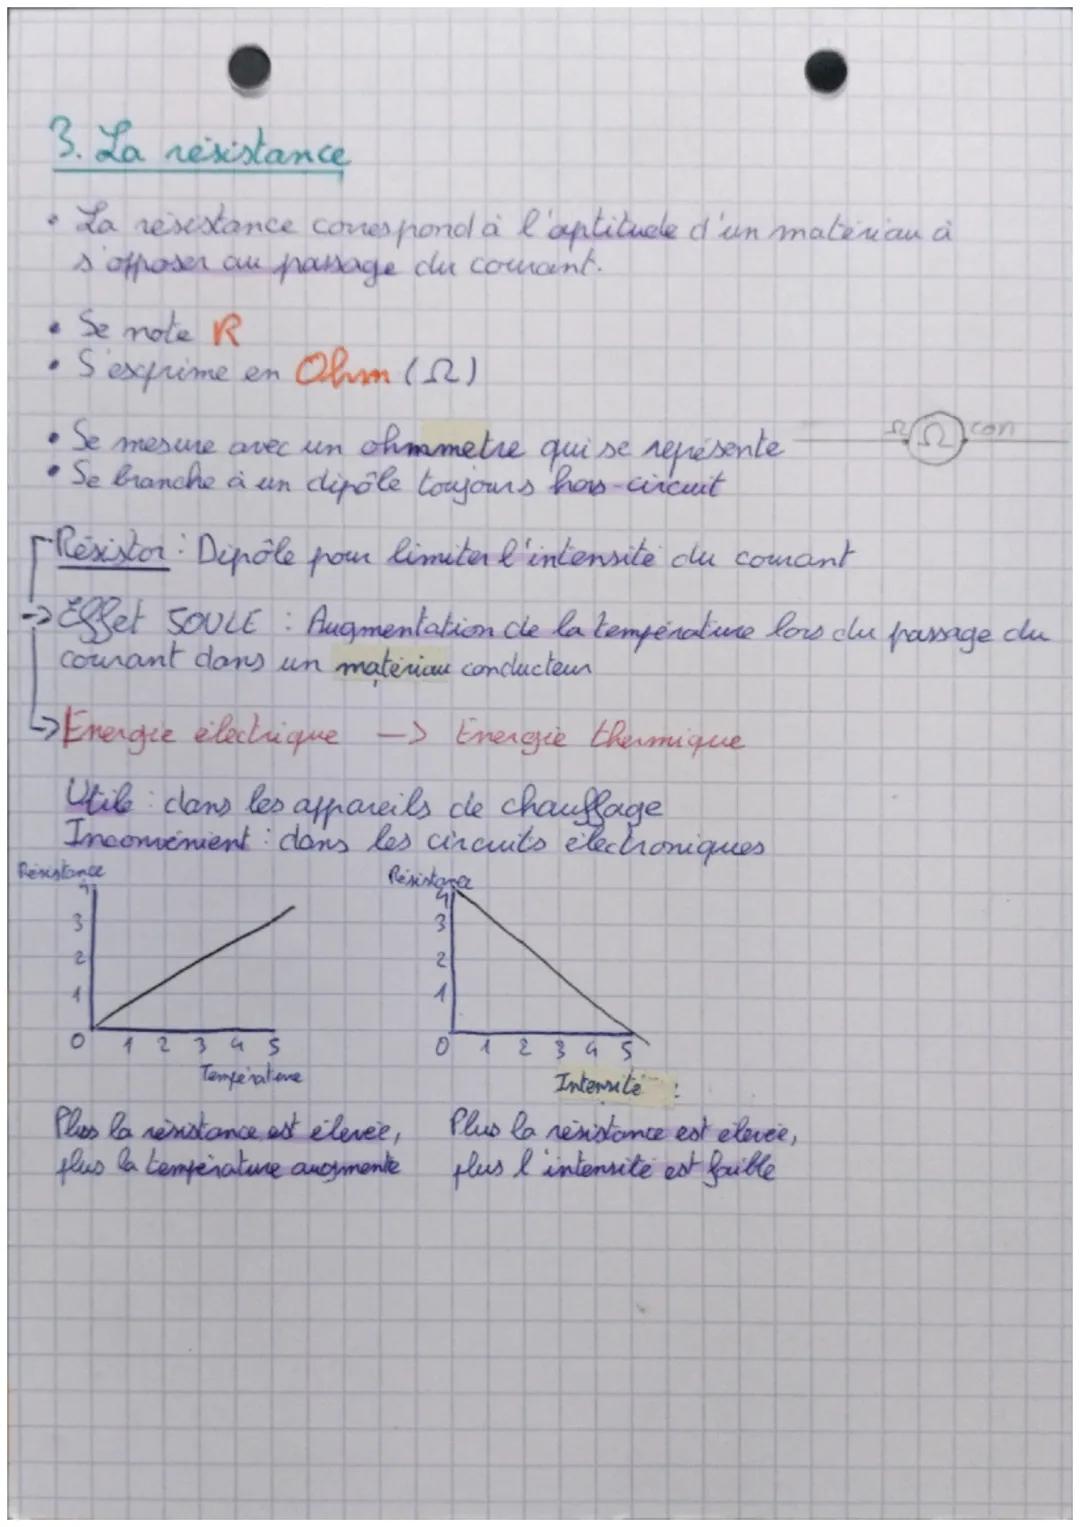 3. La résistance
• La résistance correspond à l'aptitude d'un matériau à
s'opposer au passage du courant.
• Se note R
• S'exprime en Ohm (Ω)
• Se mesure avec un ohmmetre qui se représente Ω con
• Se branche à un dipôle toujours hors-circuit
Résistor : Dipôle pour limiter l'intensité du courant
-> Effet JOULE : Augmentation de la température lors du passage du
courant dans un matériau conducteur
-> Energie électrique -> Energie thermique
Utile : dans les appareils de chauffage
Inconvénient : dans les circuits électroniques
Résistance
4
3
2
1
0 1 2 3 4 5
Température
Résistance
4
3
2
1
0 1 2 3 4 5
Intensité :
Plus la résistance est élevée,
plus la température augmente
Plus la résistance est élevée,
plus l'intensité est faible